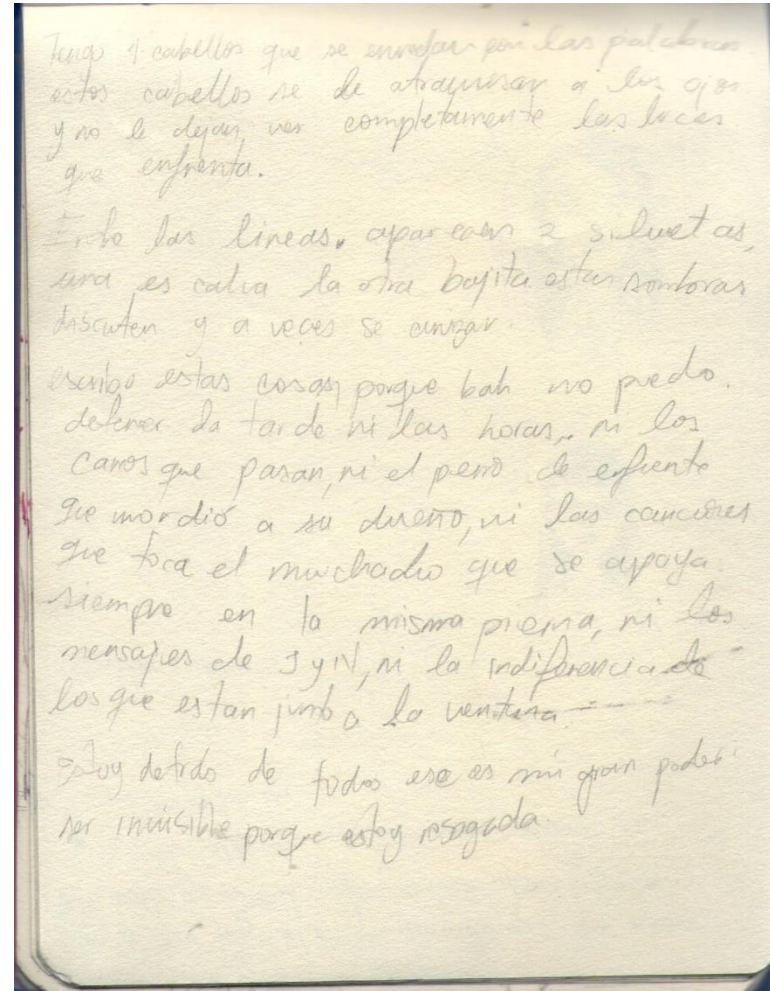 Tengo 4 cabellos que se enredan con las palabras.
estos cabellos se le atraviesan a los ojos
y no le dejan ver completamente las luces
que enfrenta.
Entre las lineas. aparecen 2 siluetas,
una es calva la otra bajita estas sombras
discuten y a veces se
escribo estas cosas, porque bah no puedo
detener la tarde ni las horas, ni los
carros que pasan, ni el perro de enfrente
que mordió a su dueño, ni las canciones
que toca el muchacho que se apoya
siempre en la misma pierna, ni los
mensajes de J y N, ni la indiferencia de
los que estan junto a la ventana
Estoy detrás de todos ese es mi gran poder:
ser invisible porque estoy resagada.